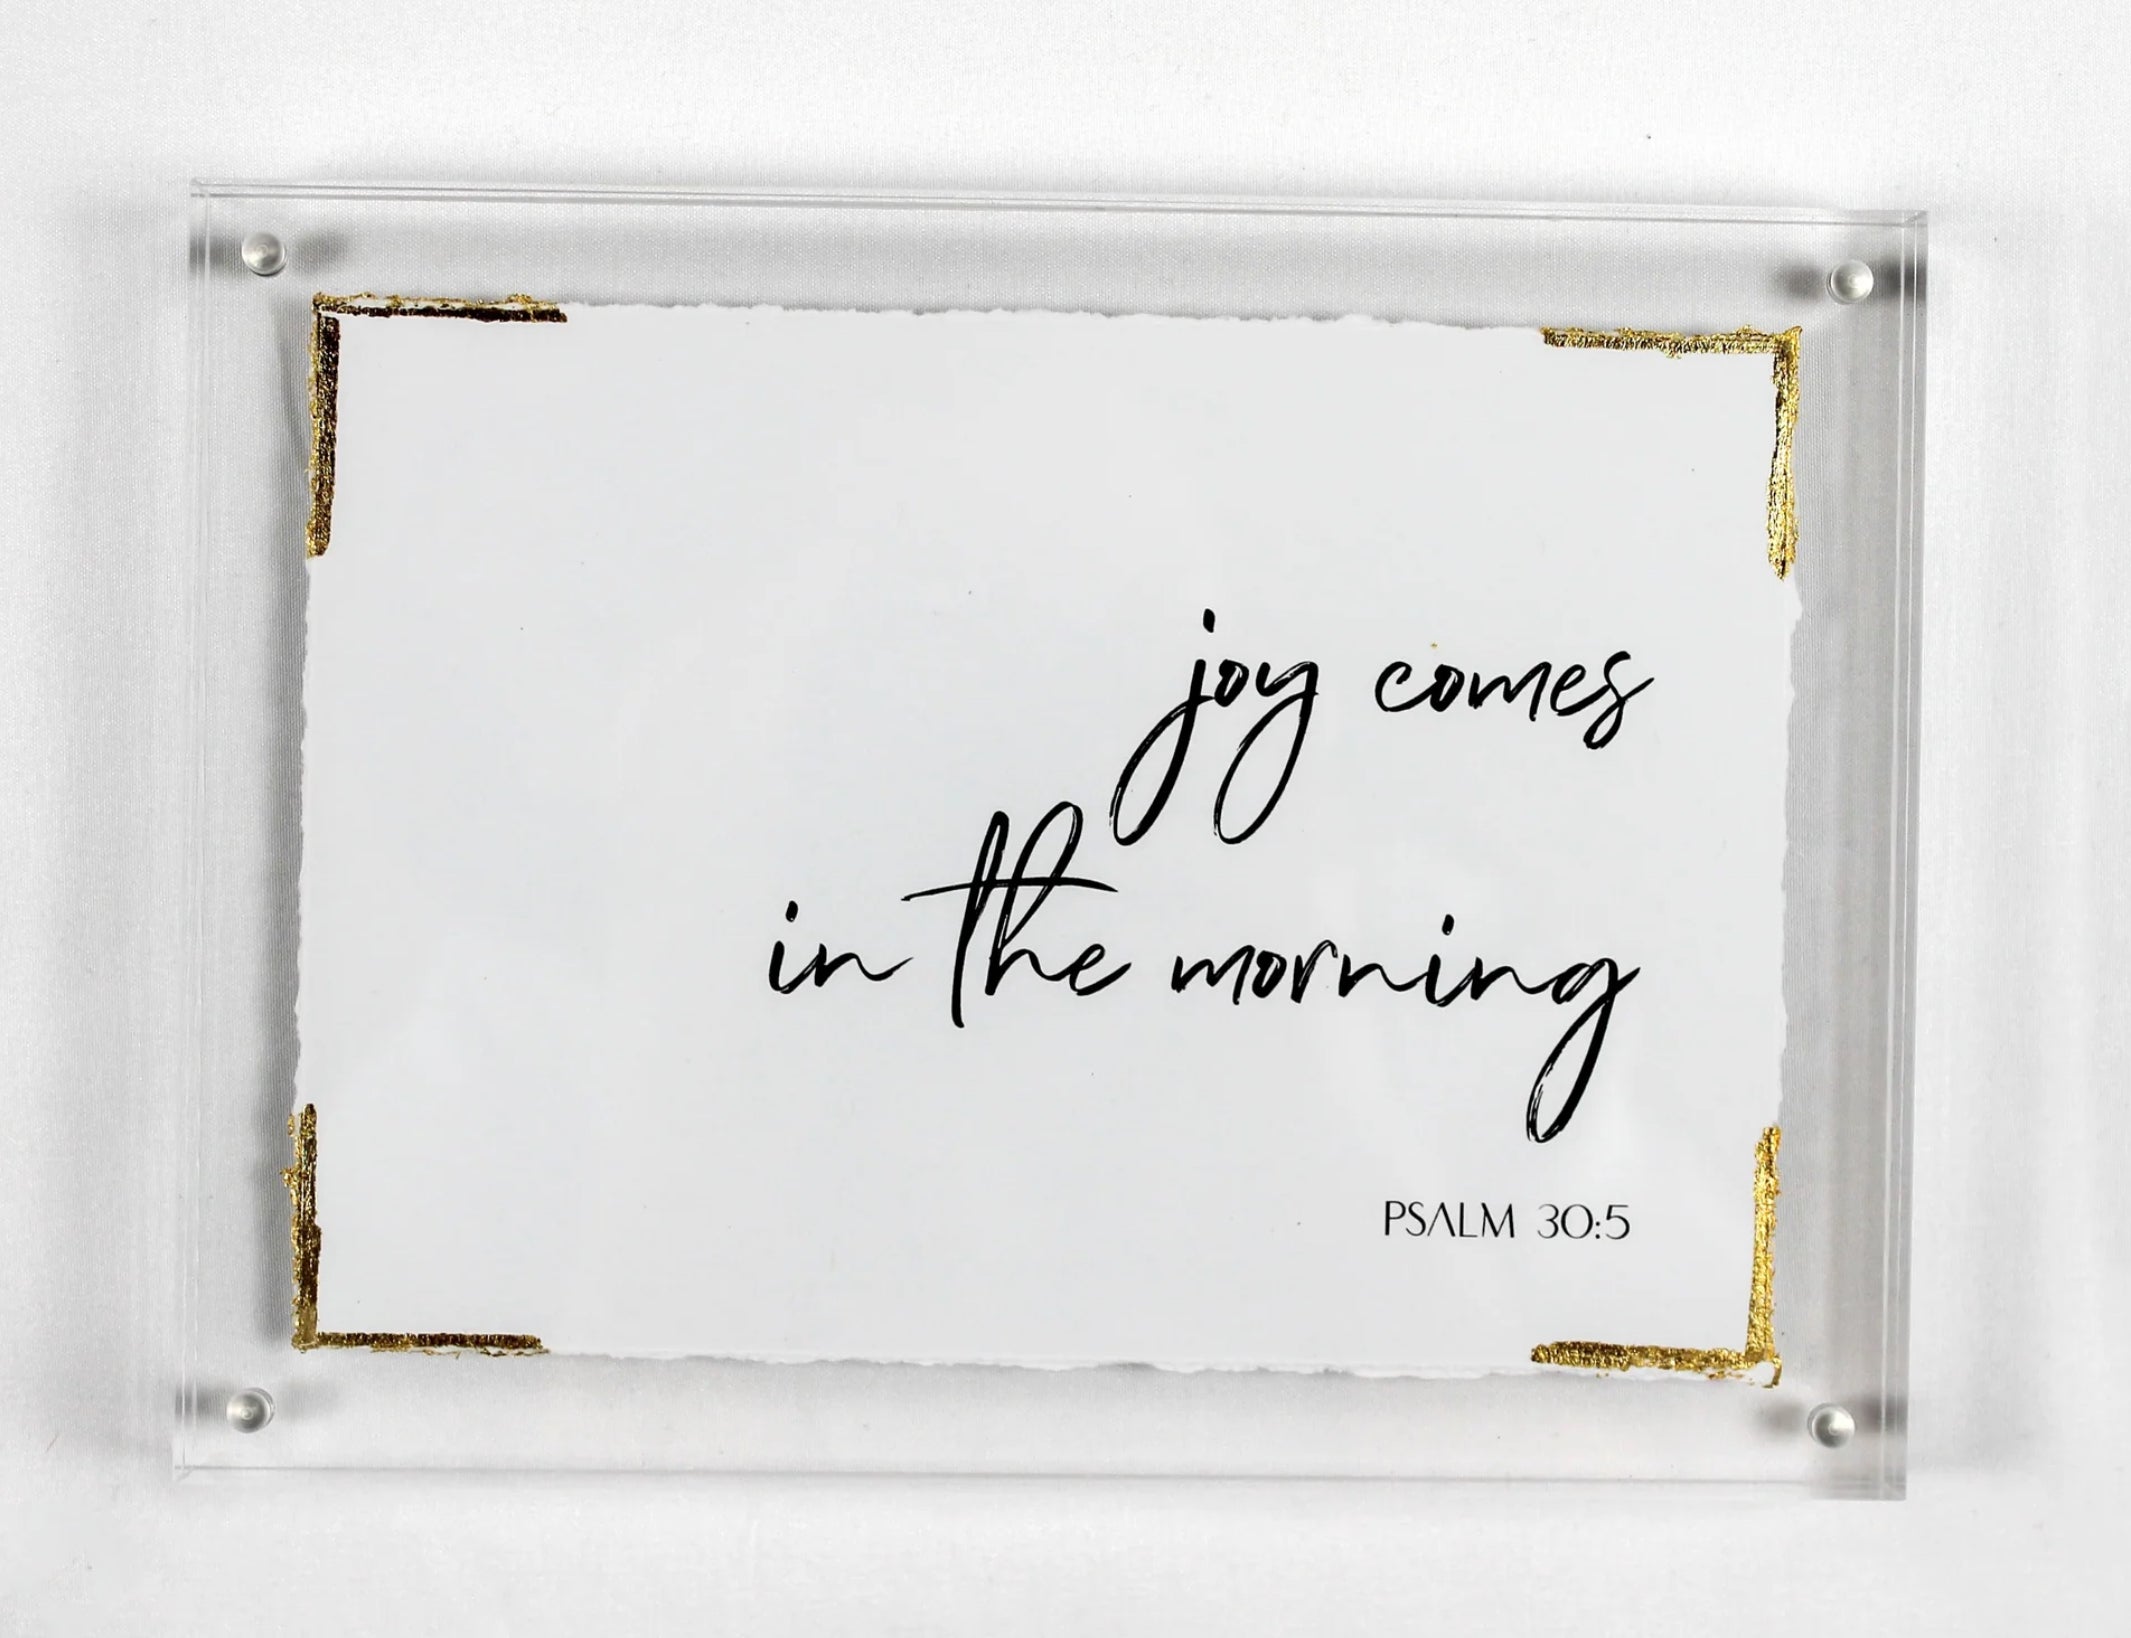 joy comes
in the morning
PSALM 30:5